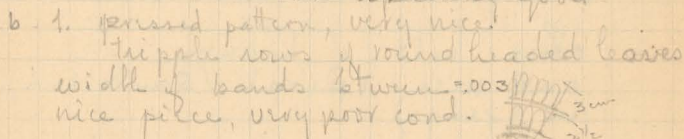 b. 1. pressed pattern, very nice.
tripple rows of round headed leaves
width of bands btween = .003
3 cm
nice piece, very poor cond.